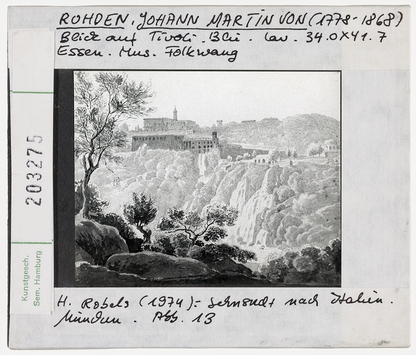 ROHDEN, JOHANN MARTIN VON (1778-1868)
Blick auf Tivoli. Blei. lav. 34.0x41.7
Essen. Mus. Folkwang
203275
Kunstgesch.
Sem. Hamburg
H. Robels (1974): Sehnsucht nach Italien.
München. Abb. 13